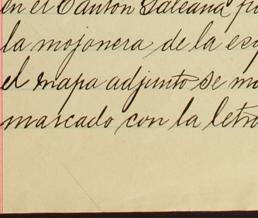 en el Canton Galeana
la mojonera de la esq
el mapa adjunto se ma
marcado con la letra